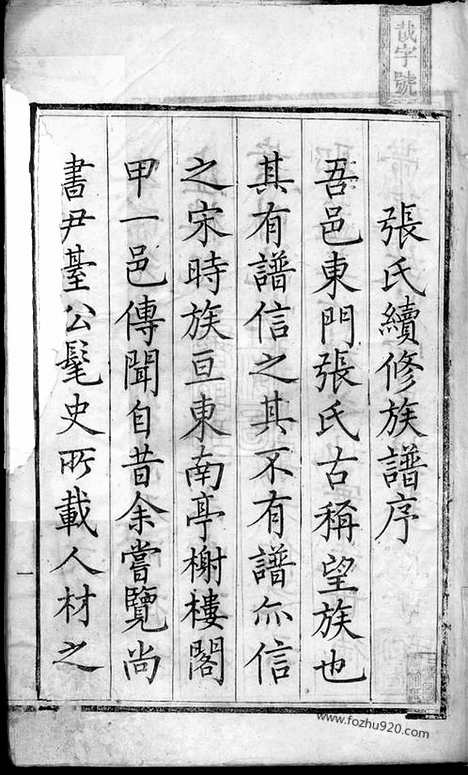 張氏續修族譜序
吾邑東門張氏古稱望族也
其有譜信之其不有譜尒信
之宋時族亘東南亭榭樓閣
甲一邑傳聞自昔余嘗覽尚
書尹臺公髦史所載人材之
一
哉字號
www.fozhu920.com